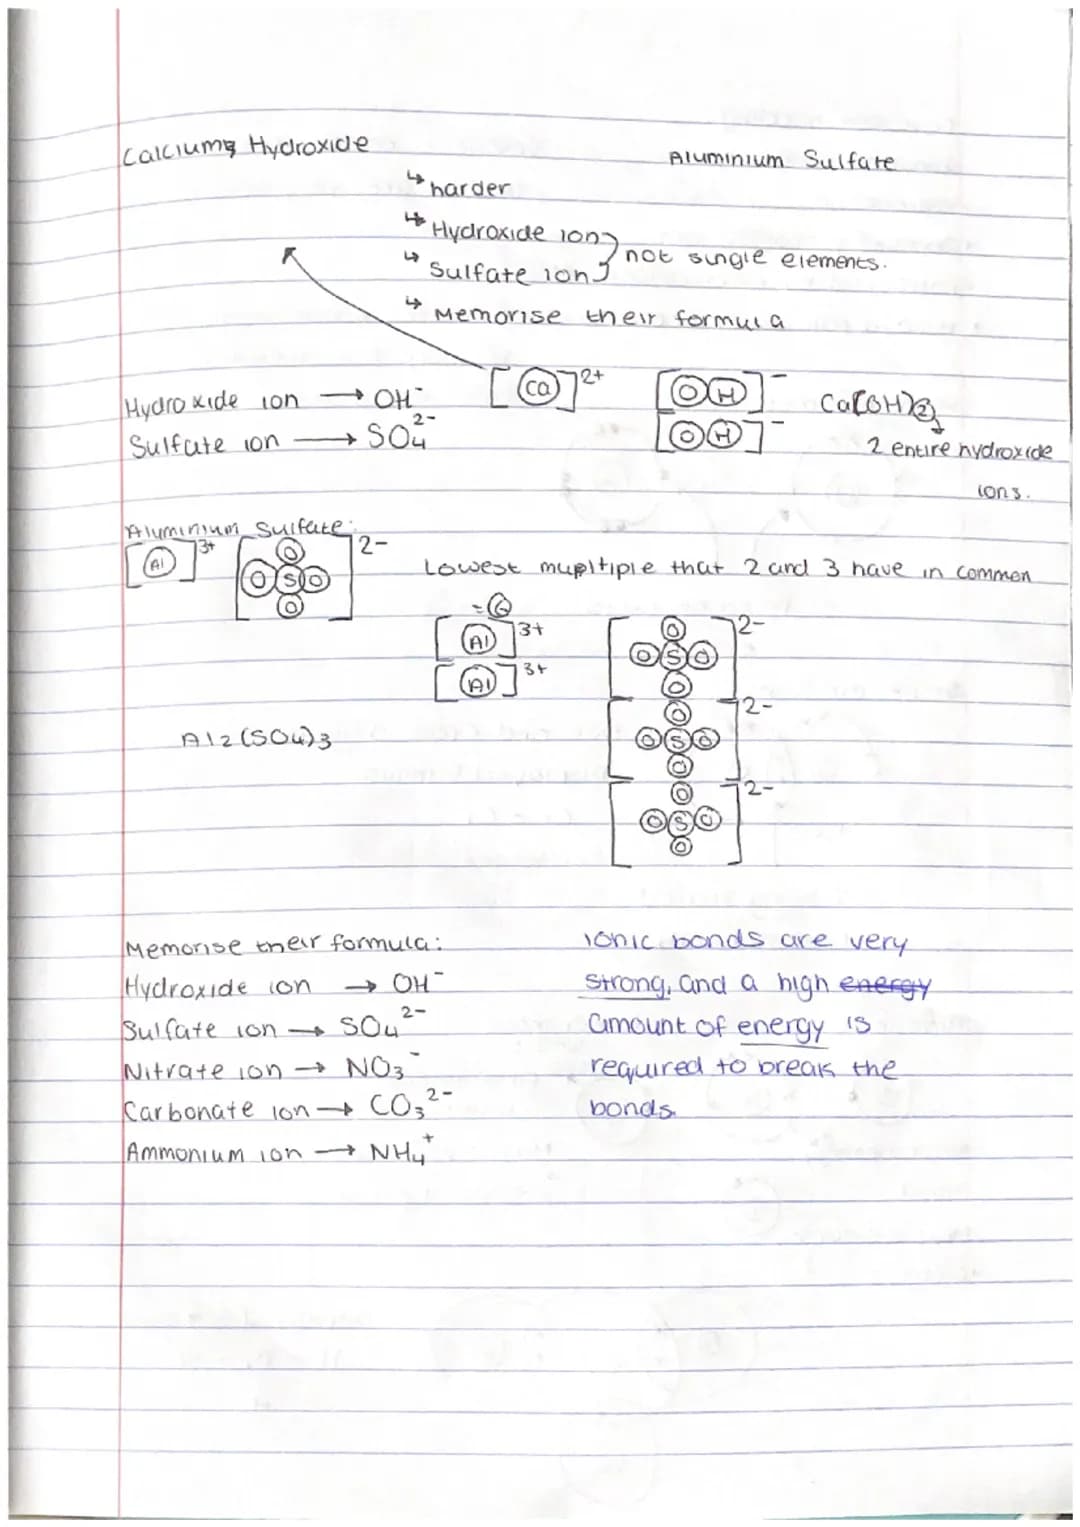 Calcium Hydroxide
Aluminium Sulfate
↳ harder
↳ Hydroxide ion
↳ Sulfate ion
} not single elements.
↳ Memorise their formula
[Ca]²⁺
[O H]⁻
[O H]⁻
Ca(OH)2
2 entire hydroxide
ions.
Hydroxide ion → OH⁻
Sulfate ion → SO4²⁻
Aluminium Sulfate:
[Al]³⁺
O
O S O
O
2-
Lowest mupltiple that 2 and 3 have in common
= 6
[Al]³⁺
[Al]³⁺
O
O S O
O
2-
O
O S O
O
2-
O
O S O
O
2-
Al2(SO4)3
Memorise their formula:
Hydroxide ion → OH⁻
Sulfate ion → SO4²⁻
Nitrate ion → NO3⁻
Carbonate ion → CO3²⁻
Ammonium ion → NH4⁺
ionic bonds are very
strong, and a high energy
amount of energy is
required to break the
bonds.